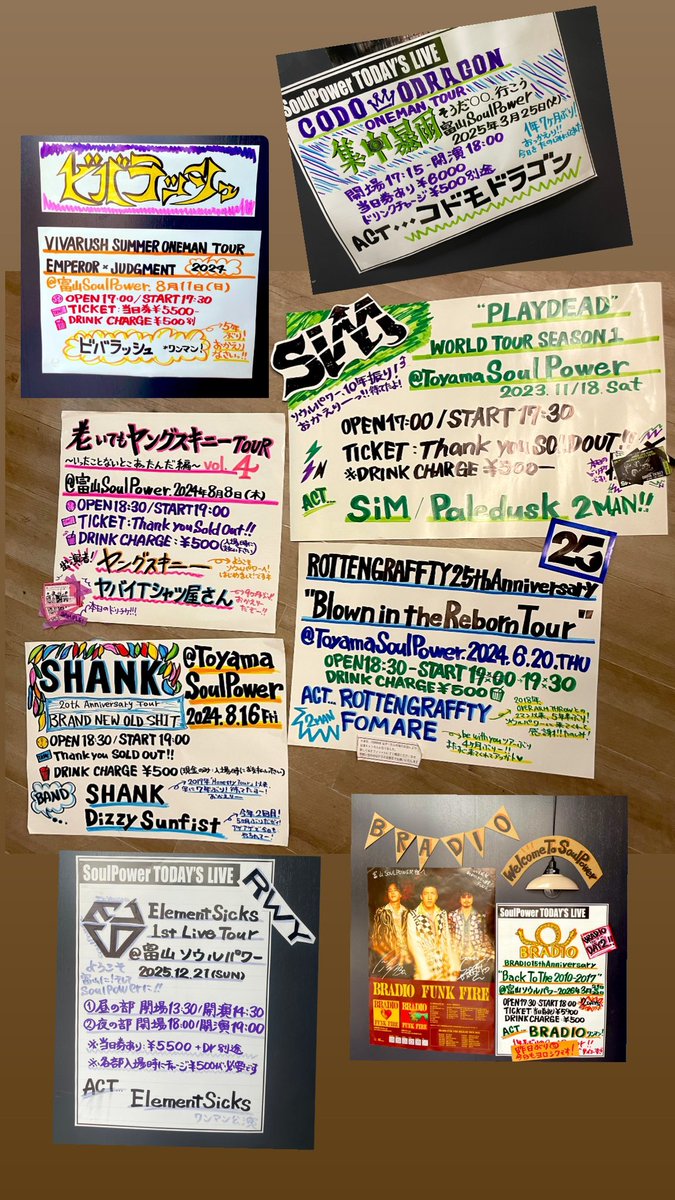 ビバラッシュ
VIVARUSH SUMMER ONEMAN TOUR
EMPEROR × JUDGMENT 2024
@富山SoulPower. 8月11日(日)
OPEN 17:00 / START 17:30
TICKET:当日券¥5500-
DRINK CHARGE ¥500別
ビバラッシュ ワンマン!
5年ぶり!
おかえりなさい!!
SoulPower TODAY'S LIVE
CODOMODRAGON
ONEMAN TOUR
集中暴雨
そうだ○○、行こう
@富山SoulPower
2025年3月25日(火)
開場17:15-開演18:00
当日券あり¥6000
ドリンクチャージ¥500別途
1年7ヶ月ぶり!!
おかえり!!
ACT…コドモドラゴン
SiM
"PLAYDEAD"
WORLD TOUR SEASON 1
@Toyama SoulPower
2023.11/18.Sat
ソウルパワー10年振り!
OPEN 17:00 / START 17:30
TICKET:Thank you SOLD OUT!!
※DRINK CHARGE ¥500-
ACT. SiM / Paledusk 2MAN!!
老いてもヤングスキニーTOUR
〜いったことないとこあったんだ編〜 vol.4
@富山SoulPower.2024年8月8日(木)
OPEN 18:30/START 19:00
TICKET:Thank you Sold Out!!
DRINK CHARGE:¥500
出演者!
ヤングスキニー
ようこそ
ソウルパワーへ!
はじめまして!
ヤバイTシャツ屋さん
本日のドリチケ!!!
25
ROTTENGRAFFTY 25th Anniversary
"Blown in the Reborn Tour"
@Toyama SoulPower.2024.6.20.THU
OPEN 18:30-START 19:00
DRINK CHARGE ¥500
ACT… ROTTENGRAFFTY
2MAN FOMARE
SHANK
20th Anniversary Tour
BRAND NEW OLD SHIT
@Toyama
SoulPower
2024.8.16 Fri
OPEN 18:30 / START 19:00
Thank you SOLD OUT!!
DRINK CHARGE ¥500
BAND
SHANK
Dizzy Sunfist
今年2回目!
SoulPower TODAY'S LIVE
RWY
ElementSicks
1st Live Tour
@富山ソウルパワー
2025.12.21(SUN)
ようこそ
富山に!そして
SOULPOWERに!!
①昼の部 開場13:30/開演14:30
②夜の部 開場18:00/開演19:00
※当日券あり¥5500+Dr別途
※各部入場時にチャージ¥500が必要です
ACT… ElementSicks
BRADIO
Welcome To SoulPower
BRADIO FUNK FIRE
SoulPower TODAY'S LIVE
BRADIO
BRADIO 15th Anniversary
"Back To The 2010-2017"
OPEN 17:30 START 18:00
TICKET 当日券あり¥5900
DRINK CHARGE ¥500
ACT… BRADIO
BRADIO
DAY2!!
昨日ぶり
今日もヨロシクです!